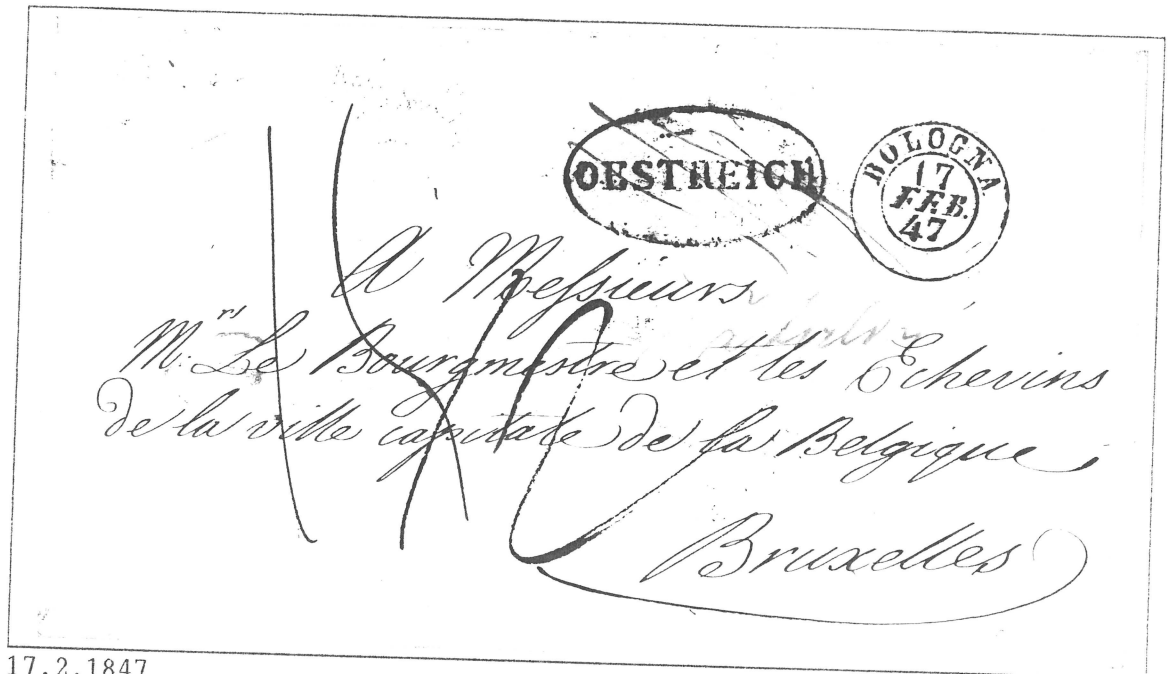 OESTREICH
BOLOGNA
17
FEB.
47
A Messieurs
M.rs Le Bourgmestre et les Echevins
de la ville capitale de la Belgique
Bruxelles
17.2.1847